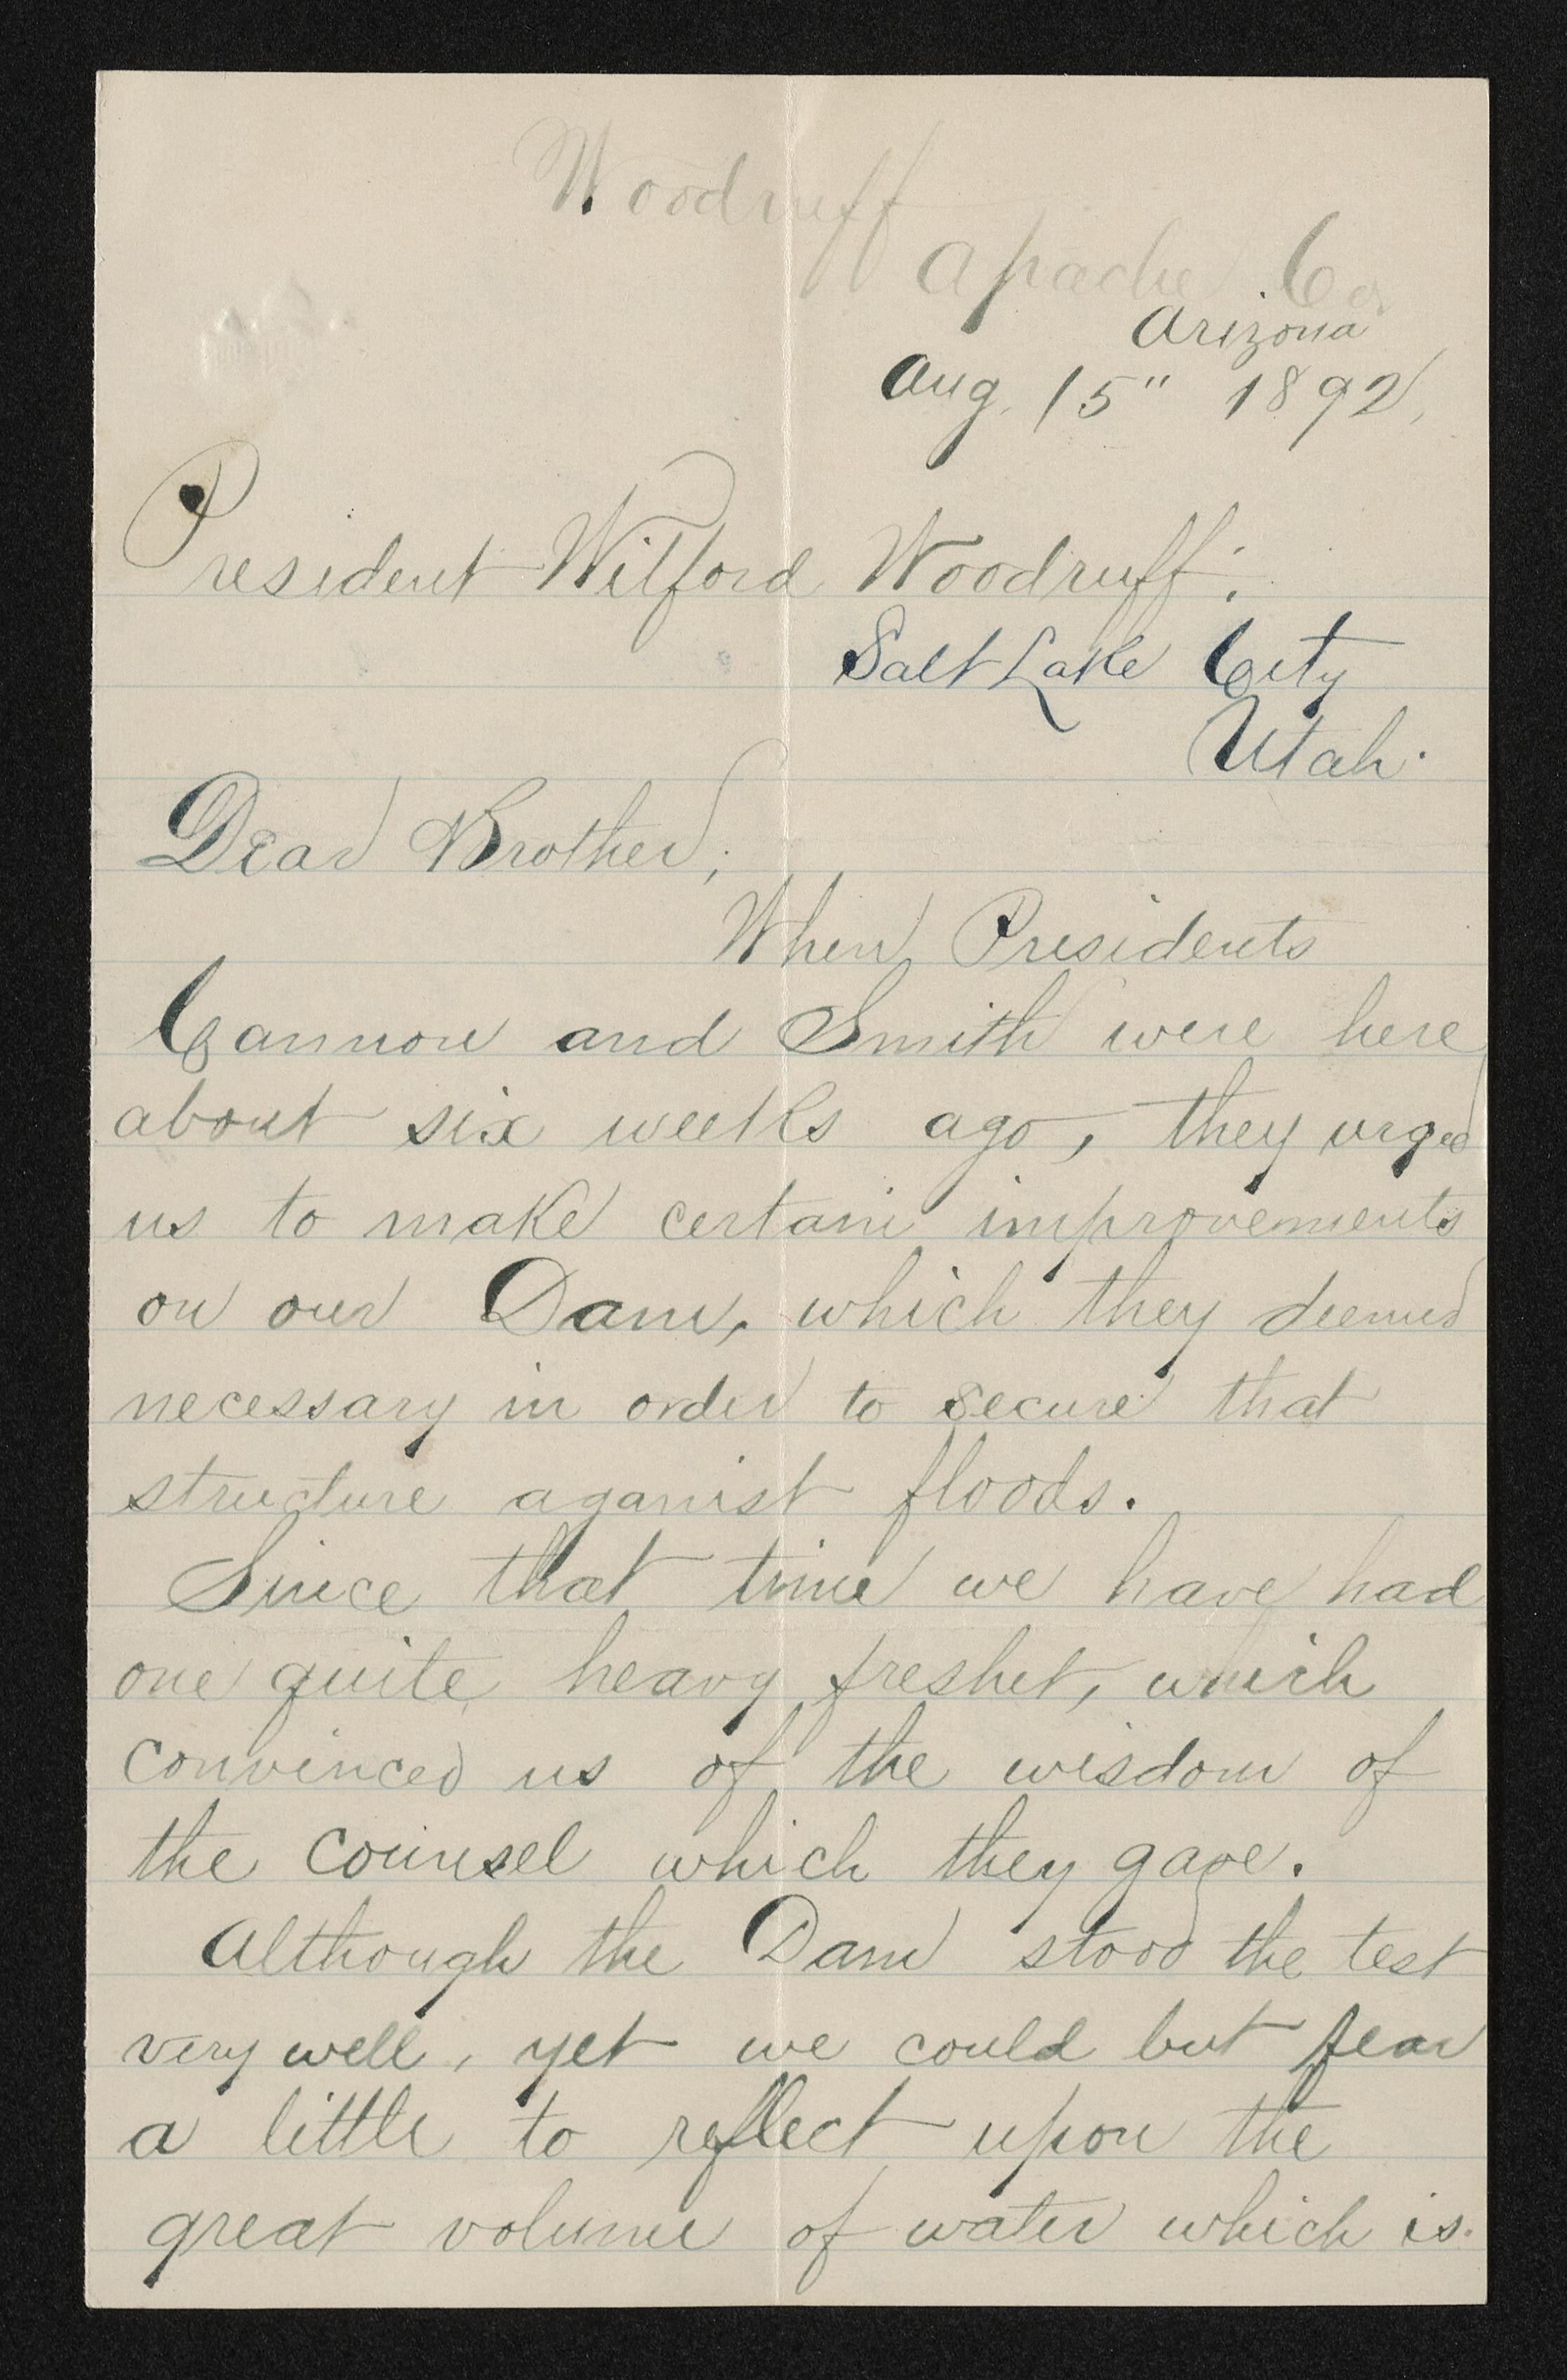 Woodruff
Apache Co
Arizona
Aug. 15" 1892,
President Wilford Woodruff;
Salt Lake City
Utah.
Dear Brother;
When Presidents
Cannon and Smith were here
about six weeks ago, they urged
us to make certain improvements
on our Dam, which they deemed
necessary in order to secure that
structure against floods.
Since that time we have had
one quite heavy freshet, which
convinced us of the wisdom of
the counsel which they gave.
Although the Dam stood the test
very well, yet we could but fear
a little to reflect upon the
great volume of water which is